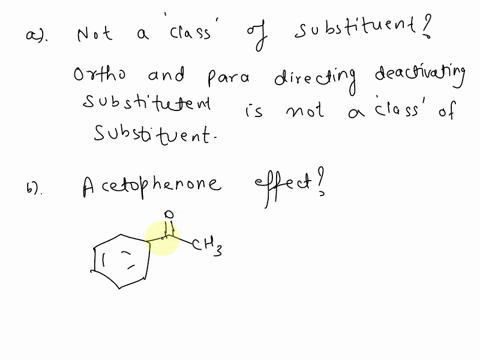 a). Not a 'class' of substituent?
Ortho and para directing deactivating
substitutent is not a 'class' of
substituent.
b). Acetophenone effect?
O
CH3